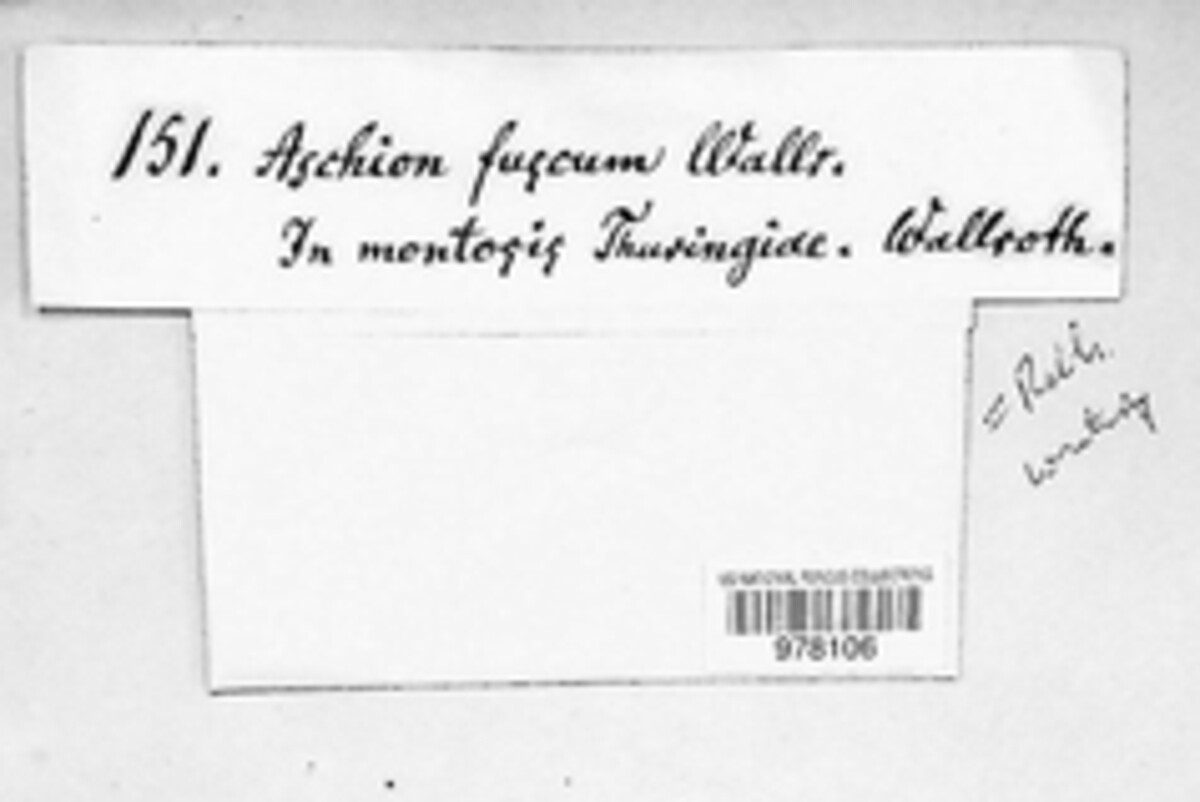 151. Aschion fuscum Wallr.
In montosis Thuringiae. Wallroth.
= Rabh.
US NATIONAL FUNGUS COLLECTIONS
978106